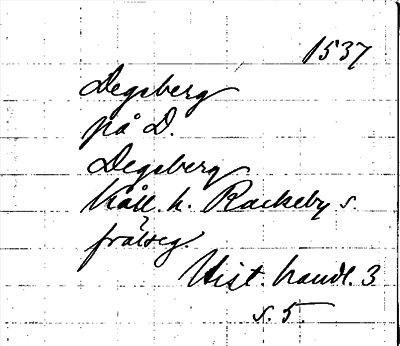 1537
Degsberg
på D.
Degsberg
Kåll. h. Rackeby s.
frälseg.
Hist. handl. 3
s. 5.